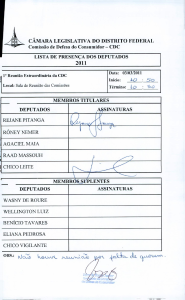 CÂMARA LEGISLATIVA DO DISTRITO FEDERAL
Comissão de Defesa do Consumidor – CDC
LISTA DE PRESENÇA DOS DEPUTADOS
2011
1ª Reunião Extraordinária da CDC
Data: 03/03/2011
Início: 10:30
Local: Sala de Reunião das Comissões
Término: 10:50
MEMBROS TITULARES
DEPUTADOS ASSINATURAS
REJANE PITANGA
RÔNEY NEMER
AGACIEL MAIA
RAAD MASSOUH
CHICO LEITE
MEMBROS SUPLENTES
DEPUTADOS ASSINATURAS
WASNY DE ROURE
WELLINGTON LUIZ
BENÍCIO TAVARES
ELIANA PEDROSA
CHICO VIGILANTE
OBS.: Não houve reunião por falta de quorum.